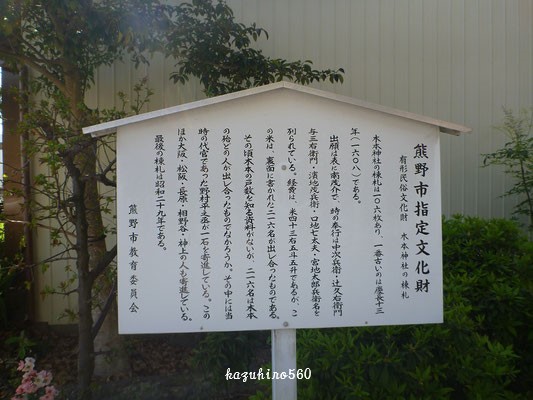 熊野市指定文化財
有形民俗文化財　木本神社の棟札
木本神社の棟札は一〇六枚あり、一番古いのは慶長十三
年（一六〇八）である。
出願は表に南茂介で、時の奉行は中次兵衛・辻久右衛門
与三右衛門・濱地茂兵衛・口地七太夫・宮地太郎兵衛名を
列らねている。経費は、米四十三石五斗五升であるが、こ
の米は、裏面に書かれた二一六名が出し合ったものである。
その頃木本の戸数を知る資料がないが、二一六名は木本
の殆どの人が出し合ったものでなかろうか。その中には当
時の代官であった野村平之丞が一石を寄進している。この
ほか大阪・松阪・長原・相野谷・神上の人も寄進している。
最後の棟札は昭和二十九年である。
熊野市教育委員会
kazuhiro560